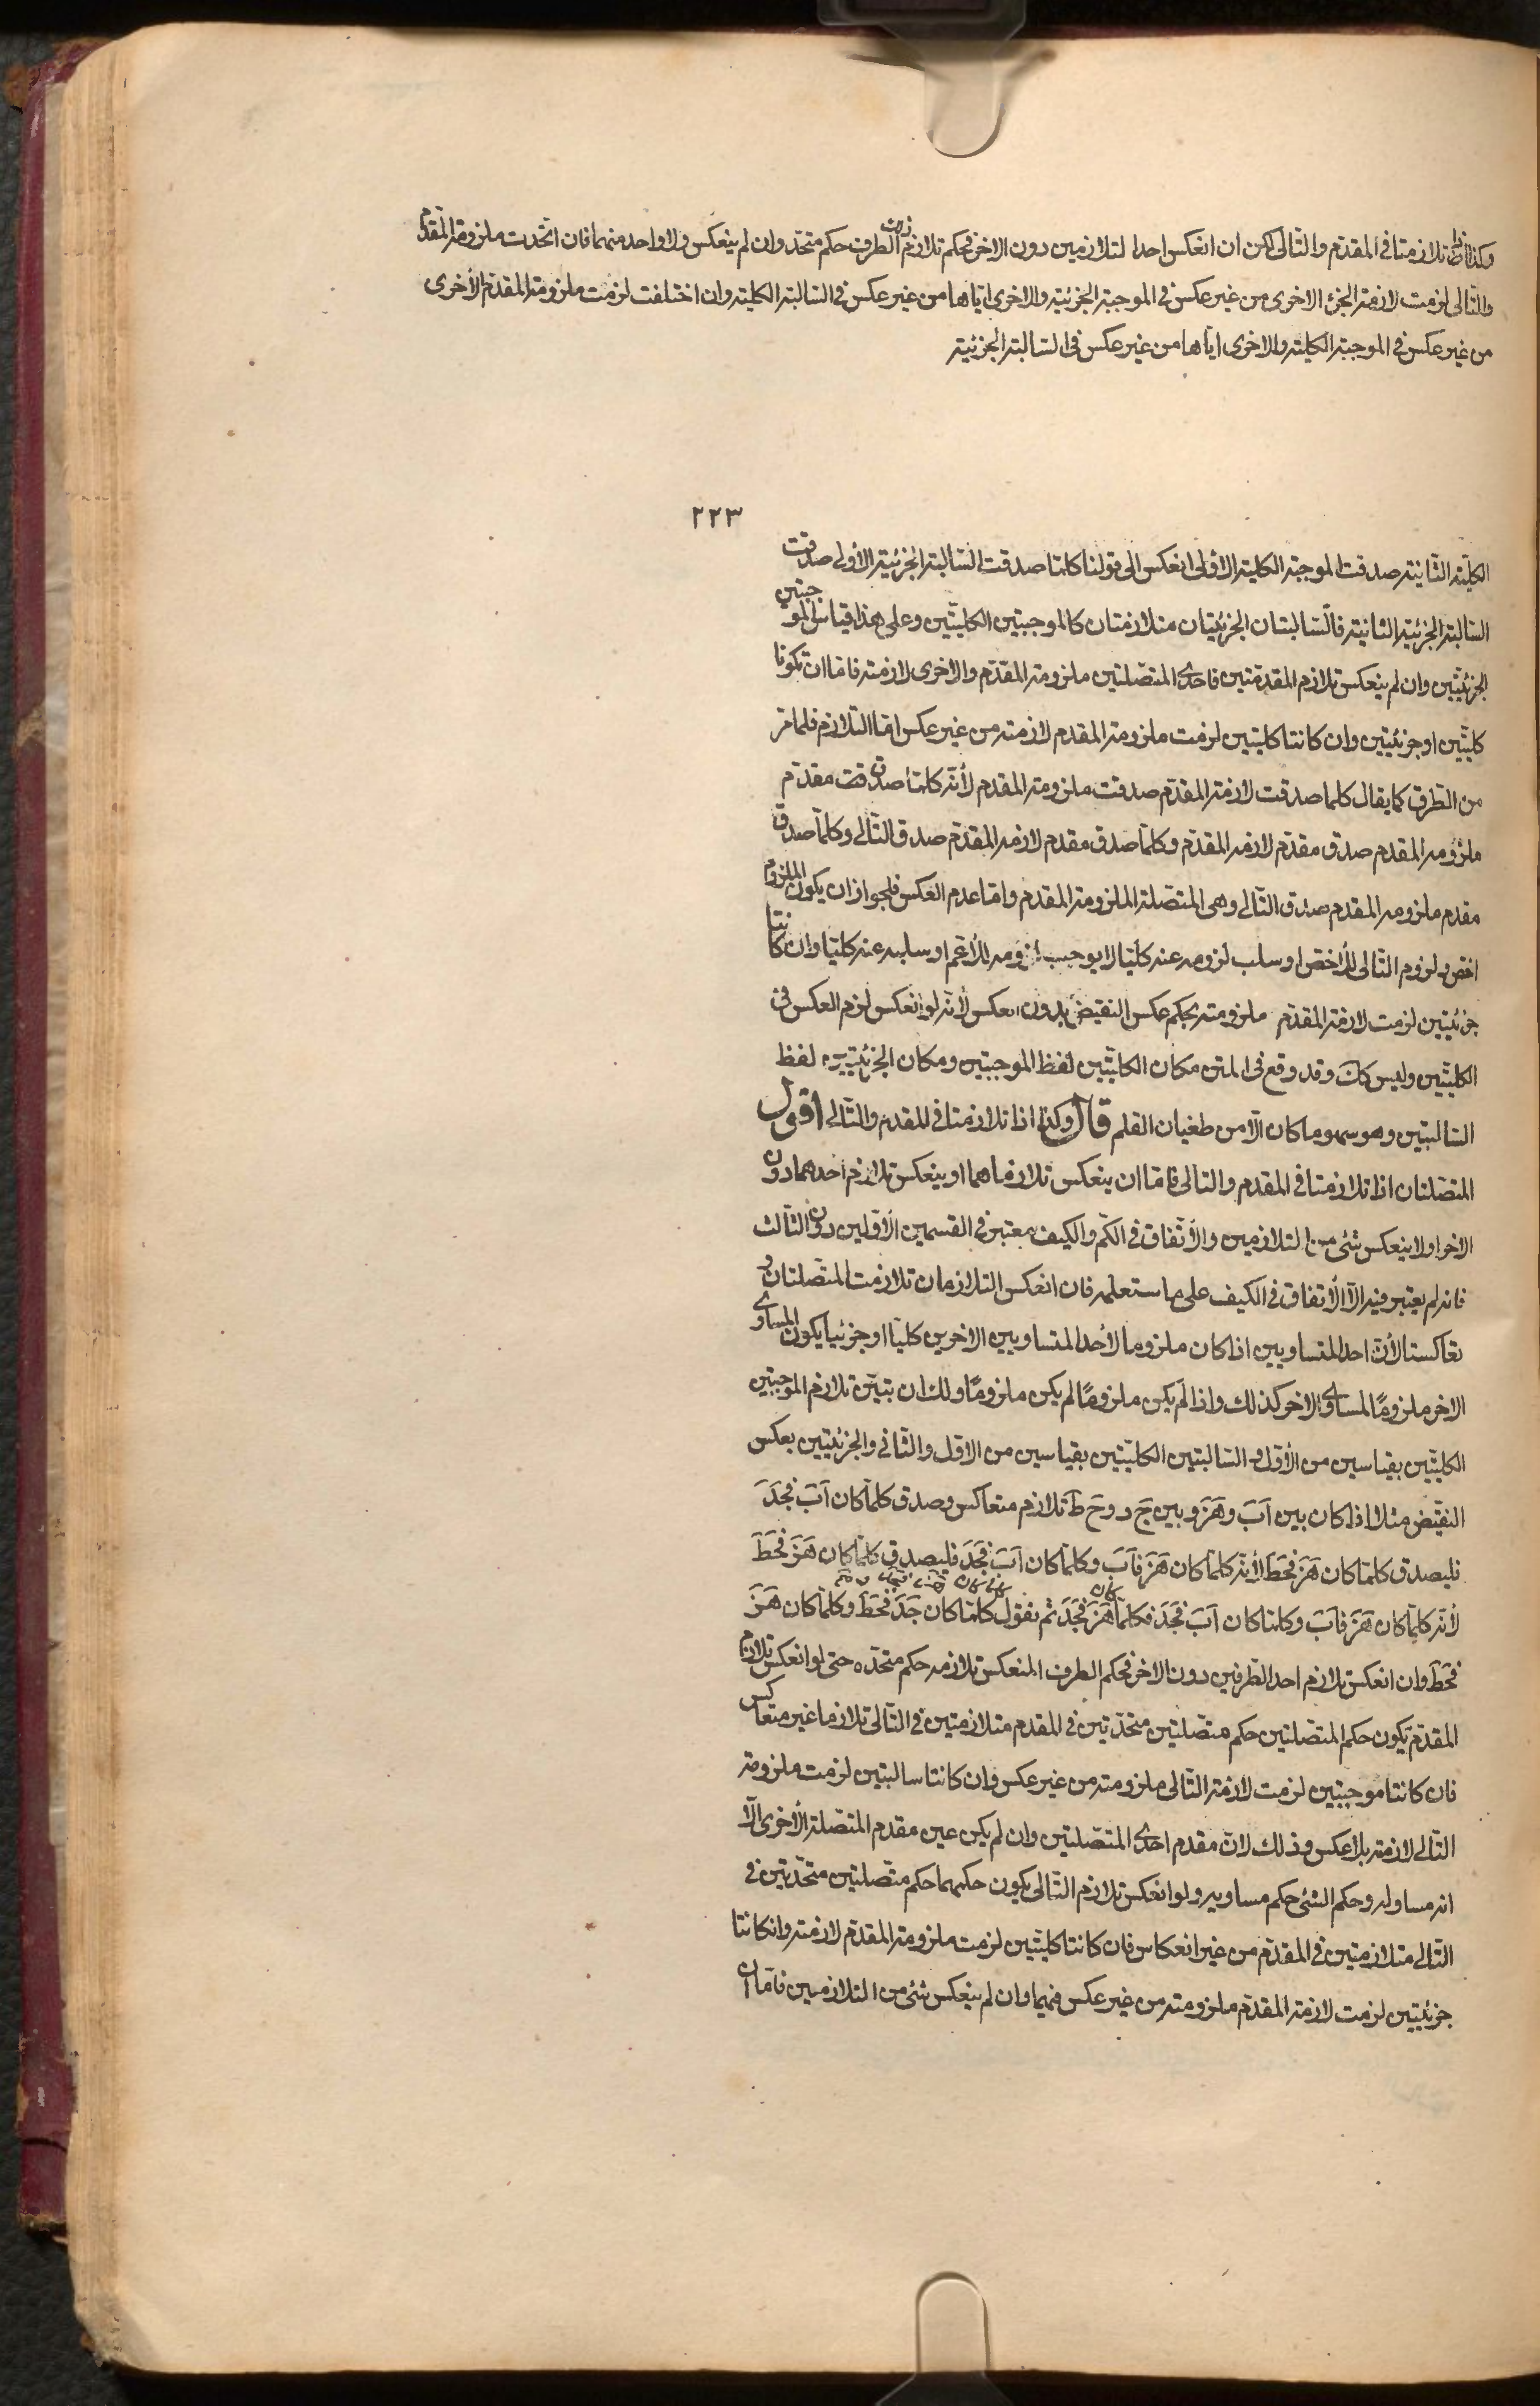 وكذا اذا تلازمتا فى المقدّم والتّالى لكن ان انعكس احدا لتلازمين دون الاخر فحكم تلازم الطرف حكم متحد وان لم ينعكس ولا واحد منهما فان اتّحدت ملزومة المقدّم
والتّالى لزمت لازمة الجزء الاخرى من غير عكس فى الموجبة الجزئية والاخرى ايّاها من غير عكس فى السّالبة الكلية وان اختلفت لزمت ملزومة المقدّم الأخرى
من غير عكس فى الموجبة الكلية والاخرى ايّاها من غير عكس فى السّالبة الجزئية
٢٢٣
الكليّة الثانية صدقت الموجبة الكلية الاولى انعكس الى قولنا كلما صدقت السّالبة الجزئية الأولى صدقت
السّالبة الجزئية الثانية فالسّالبتان الجزئيتان متلازمتان كالموجبتين الكليّتين وعلى هذا قياس الموجبتين
الجزئيّتين وان لم ينعكس تلازم المقدمتين فاحدى المتصلتين ملزومة المقدّم والاخرى لازمته فامّا ان تكونا
كليّتين او جزئيتين وان كانتا كليتين لزمت ملزومة المقدم لازمته من غير عكس امّا التلازم فلما مرّ
من الطرق كما يقال كلما صدقت لازمة المقدّم صدقت ملزومة المقدم لأنّه كلما صدقت مقدّم
ملزومة المقدم صدق مقدّم لازمة المقدّم وكلّما صدق مقدم لازمة المقدّم صدق التّالى وكلّما صدق
مقدم ملزومة المقدم صدق التّالى وهى المتصلة الملزومة المقدم وامّا عدم العكس فلجواز ان يكون الملزوم
اخص ولزوم التّالى للأخصّ او سلب لزومه عنه كليّا لا يوجب لزومه للأعم او سلبه عنه كليّا وان كانتا
جزئيتين لزمت لازمة المقدّم ملزومته بحكم عكس النقيض بدون العكس لأنّه لو انعكس لزم العكس فى
الكليّتين وليس كك وقد وقع فى المتن مكان الكليّتين لفظ الموجبتين ومكان الجزئيّتين لفظ
السّالبتين وهو سهو ما كان الّا من طغيان القلم قال وكذا اذا تلازمتا فى المقدم والتّالى أقول
المتصلتان اذا تلازمتا فى المقدم والتالى فامّا ان ينعكس تلازماهما او ينعكس تلازم احدهما دون
الاخر او لا ينعكس شئ من التلازمين والأتفاق فى الكمّ والكيف معتبر فى القسمين الأوّلين دون الثّالث
فانه لم يعتبر فيه الّا الأتفاق فى الكيف على ما ستعلمه فان انعكس التلازمان تلازمت المتّصلتان و
تعاكستا لأنّ احد المتساويين اذا كان ملزوما لأحد المتساويين الاخرين كليّا او جزئيا يكون المساوى
الاخر ملزومًا لمساوى الاخر كذلك واذا لم يكن ملزومًا لم يكن ملزومًا ولك ان تبيّن تلازم الموجبتين
الكليّتين بقياسين من الأوّل والسّالبتين الكليّتين بقياسين من الاوّل والثّانى والجزئيتين بعكس
النقيض مثلا اذا كان بين اَبَ وهَزَ وبين جَ د وحَ طَ تلازم متعاكس وصدق كلّما كان اَبَ فجَدَ
فليصدق كلّما كان هَزَ فحَطَ لأنّه كلّما كان هَزَ فاَبَ وكلّما كان اَبَ فجَدَ فليصدق كلّما كان هَزَ فحَطَ
لأنّه كلّما كان هَزَ فاَبَ وكلما كان اَبَ فجَدَ فكلّما كان هَزَ فجَدَ ثم نقول كلّما كان جَدَ فحَطَ وكلّما كان هَزَ
فحَطَ وان انعكس تلازم احد الطّرفين دون الاخر فحكم الطرف المنعكس تلازمه حكم متحده حتى لو انعكس تلازم
المقدّم يكون حكم المتصلتين حكم متصلتين متحدتين فى المقدم متلازمتين فى التّالى تلازما غير متعاكس
فان كانتا موجبتين لزمت لازمة التّالى ملزومته من غير عكس وان كانتا سالبتين لزمت ملزومة
التّالى لازمته بلا عكس وذلك لانّ مقدم احدى المتصلتين وان لم يكن عين مقدم المتصلة الأخرى الّا
انه مساو له وحكم الشئ حكم مساويه ولو انعكس تلازم التّالى يكون حكمهما حكم متّصلتين متحدتين فى
التّالى متلازمتين فى المقدّم من غير انعكاس فان كانتا كليّتين لزمت ملزومة المقدّم لازمته وان كانتا
جزئيتين لزمت لازمة المقدّم ملزومته من غير عكس فيهما وان لم ينعكس شئ من التلازمين فامّا ان